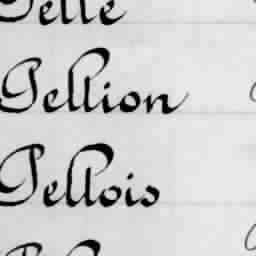 Pelle
Pellion
Pellois